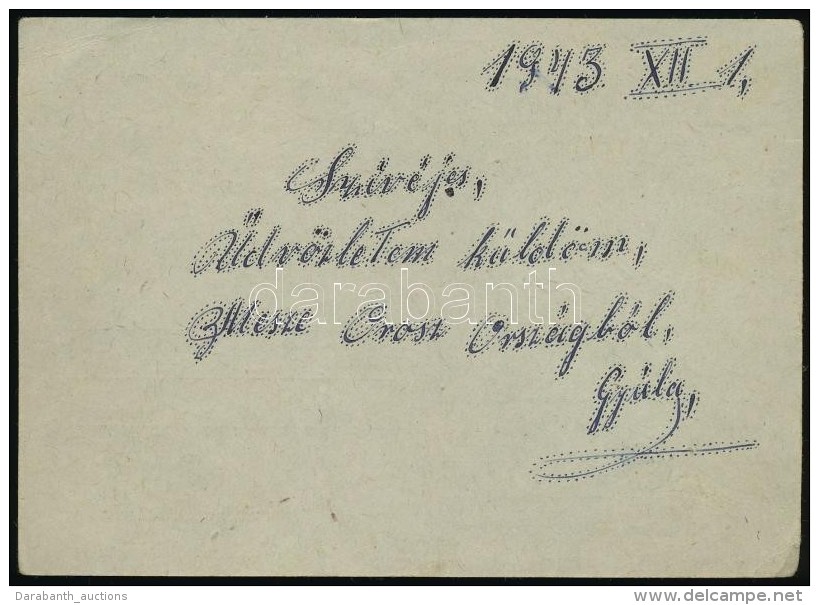 1943 XII 1,
Szivéjes,
Üdvözletem küldöm,
Mesze Orosz Országból,
Gyula,
darabanth
Darabanth_auctions
delcampe.net